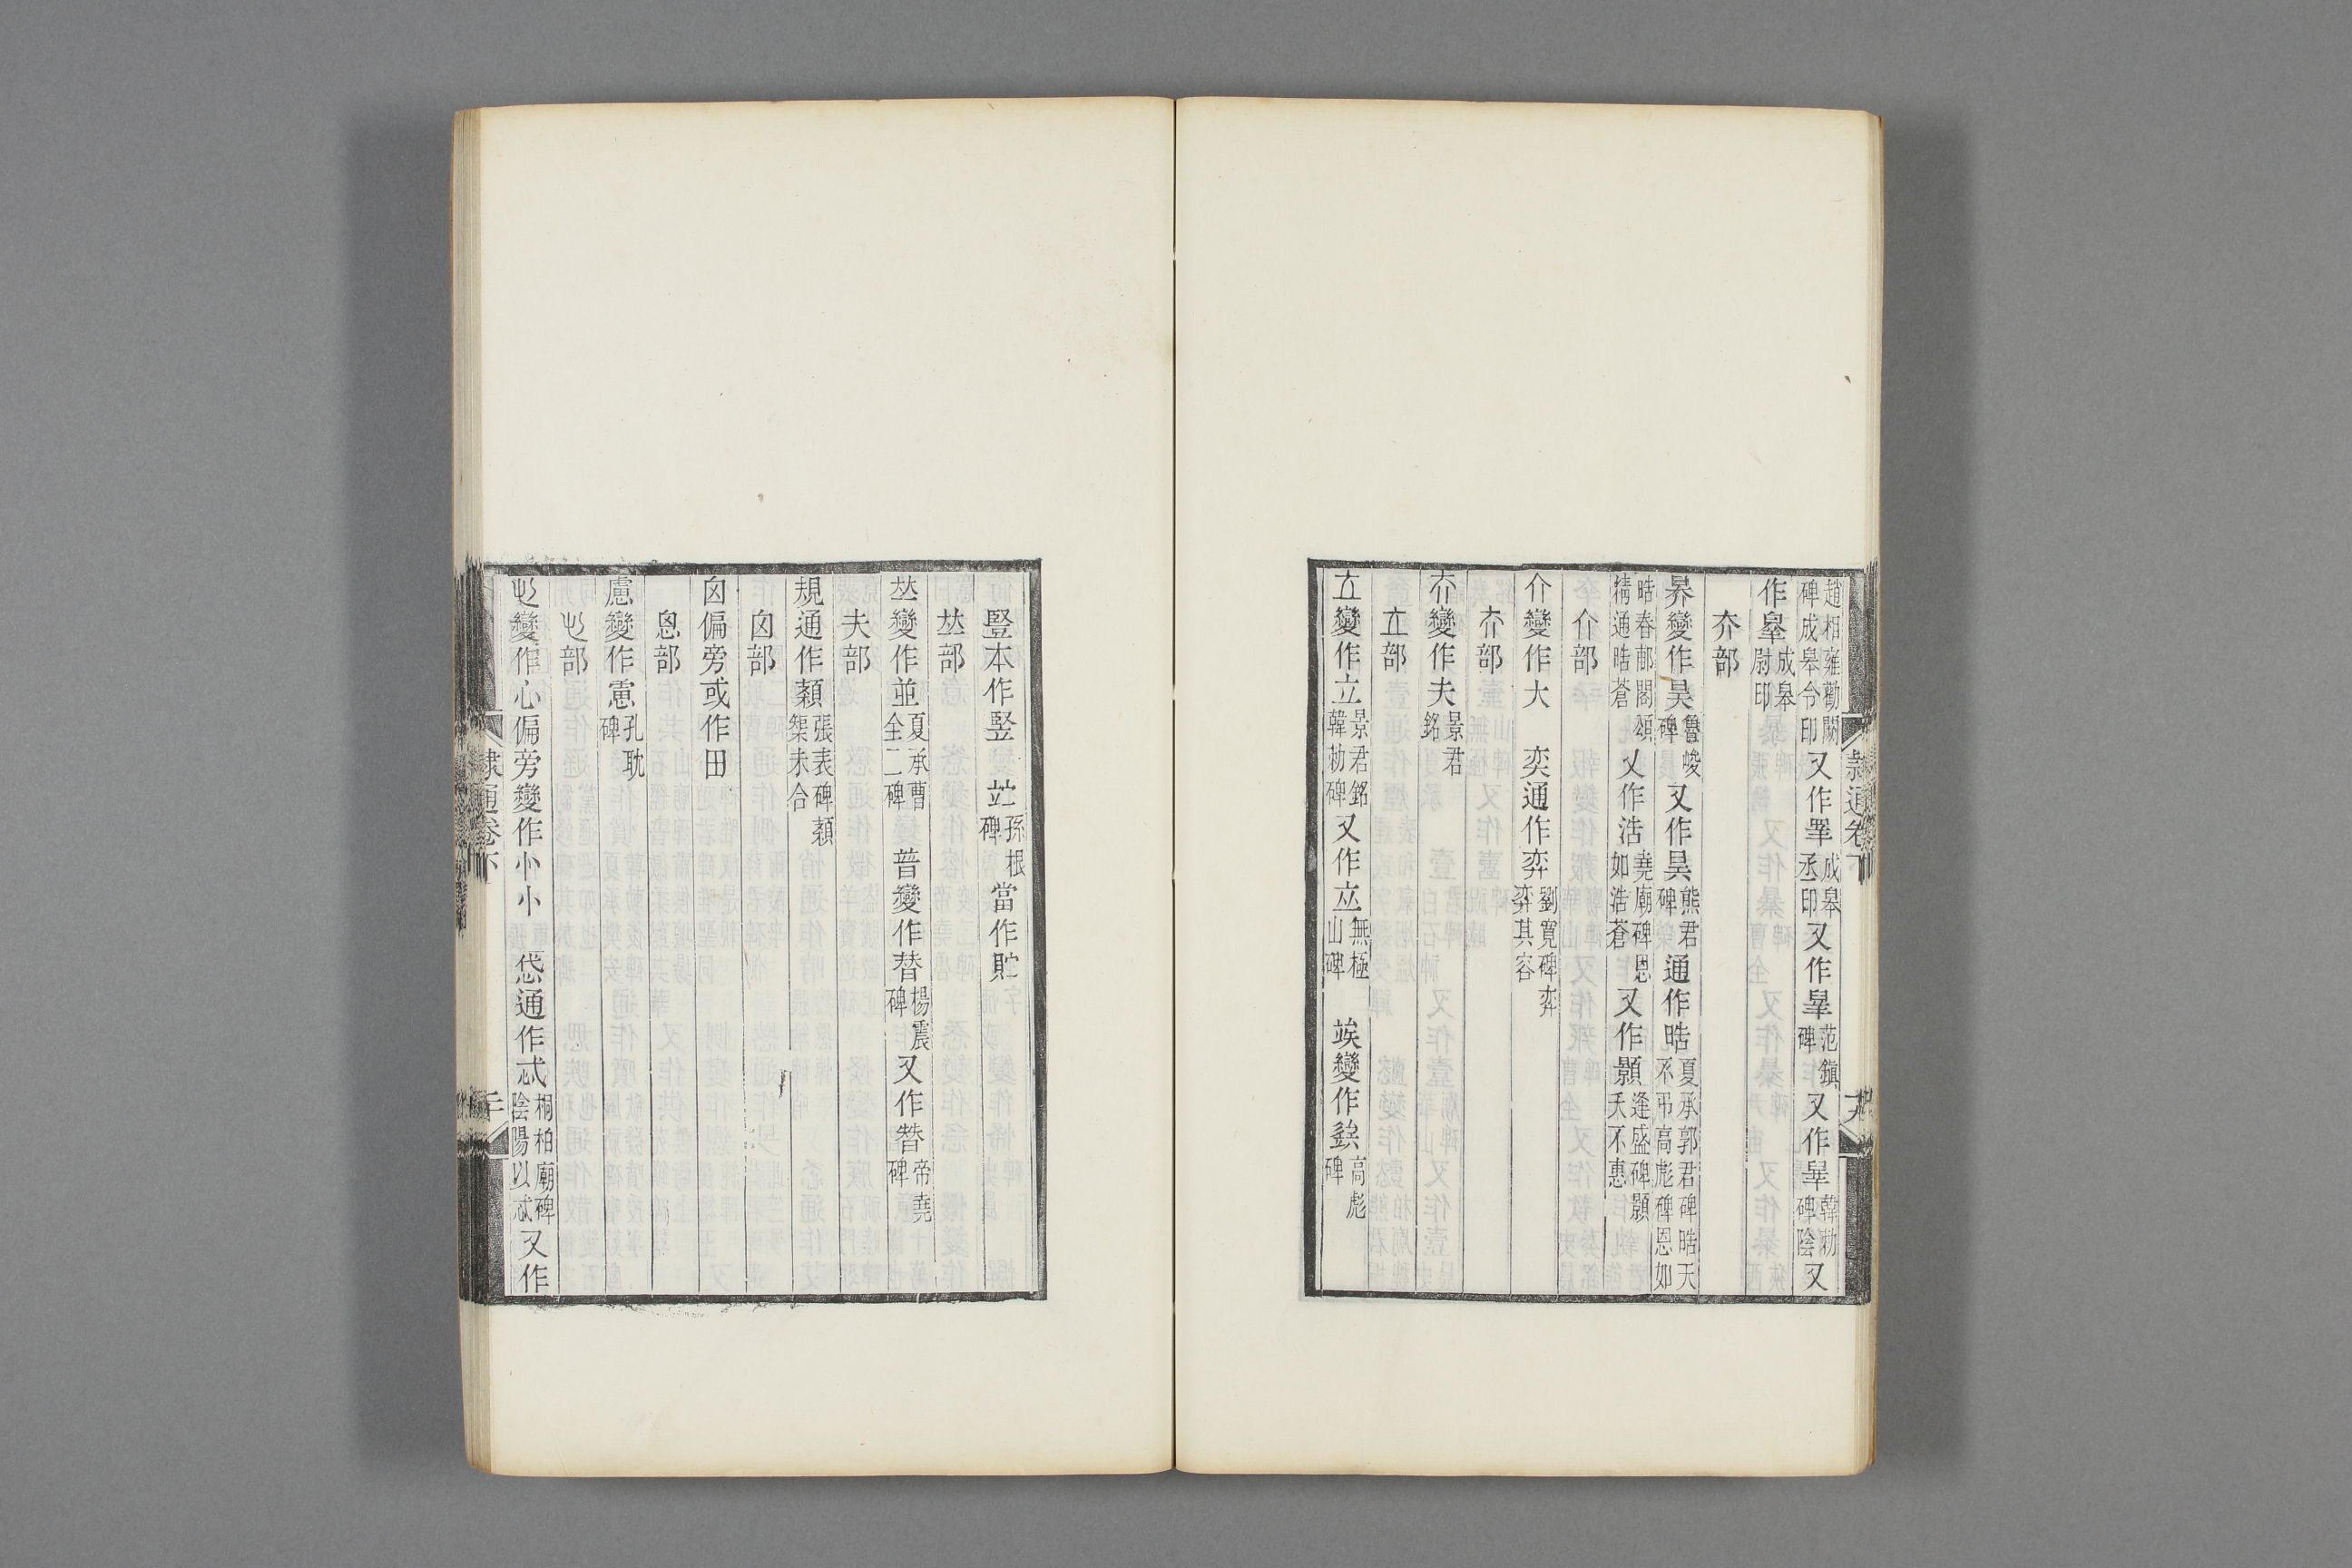 趙相雍勸闕碑成皋令印又作睪成皋丞印又作皋范鎭碑又作皐韓勑碑陰又
作皋成皋尉印
夰部
昦變作昊魯峻碑又作昊熊君碑通作晧夏承郭君碑晧天不弔高彪碑恩如
晧春郙閣頌精通晧蒼又作浩堯廟碑恩如浩蒼又作顥逢盛碑顥天不惠
亣部
亣變作大　奕通作弈劉寬碑弈弈其容
夫部
夫變作夫景君銘
立部
立變作立景君銘韓勑碑又作立無極山碑　竢變作高彪碑
隸通卷下　十九
豎本作竪　竚孫根碑當作貯
竝部
竝變作並夏承曹全二碑　普變作替楊震碑又作替帝堯碑
夫部
規通作張表碑榘未合
囟部
囟偏旁或作田
思部
慮變作慮孔耽碑
心部
心變作心偏旁變作忄小　恷通作忒桐柏廟碑陰陽以忒又作
隸通卷下　二十